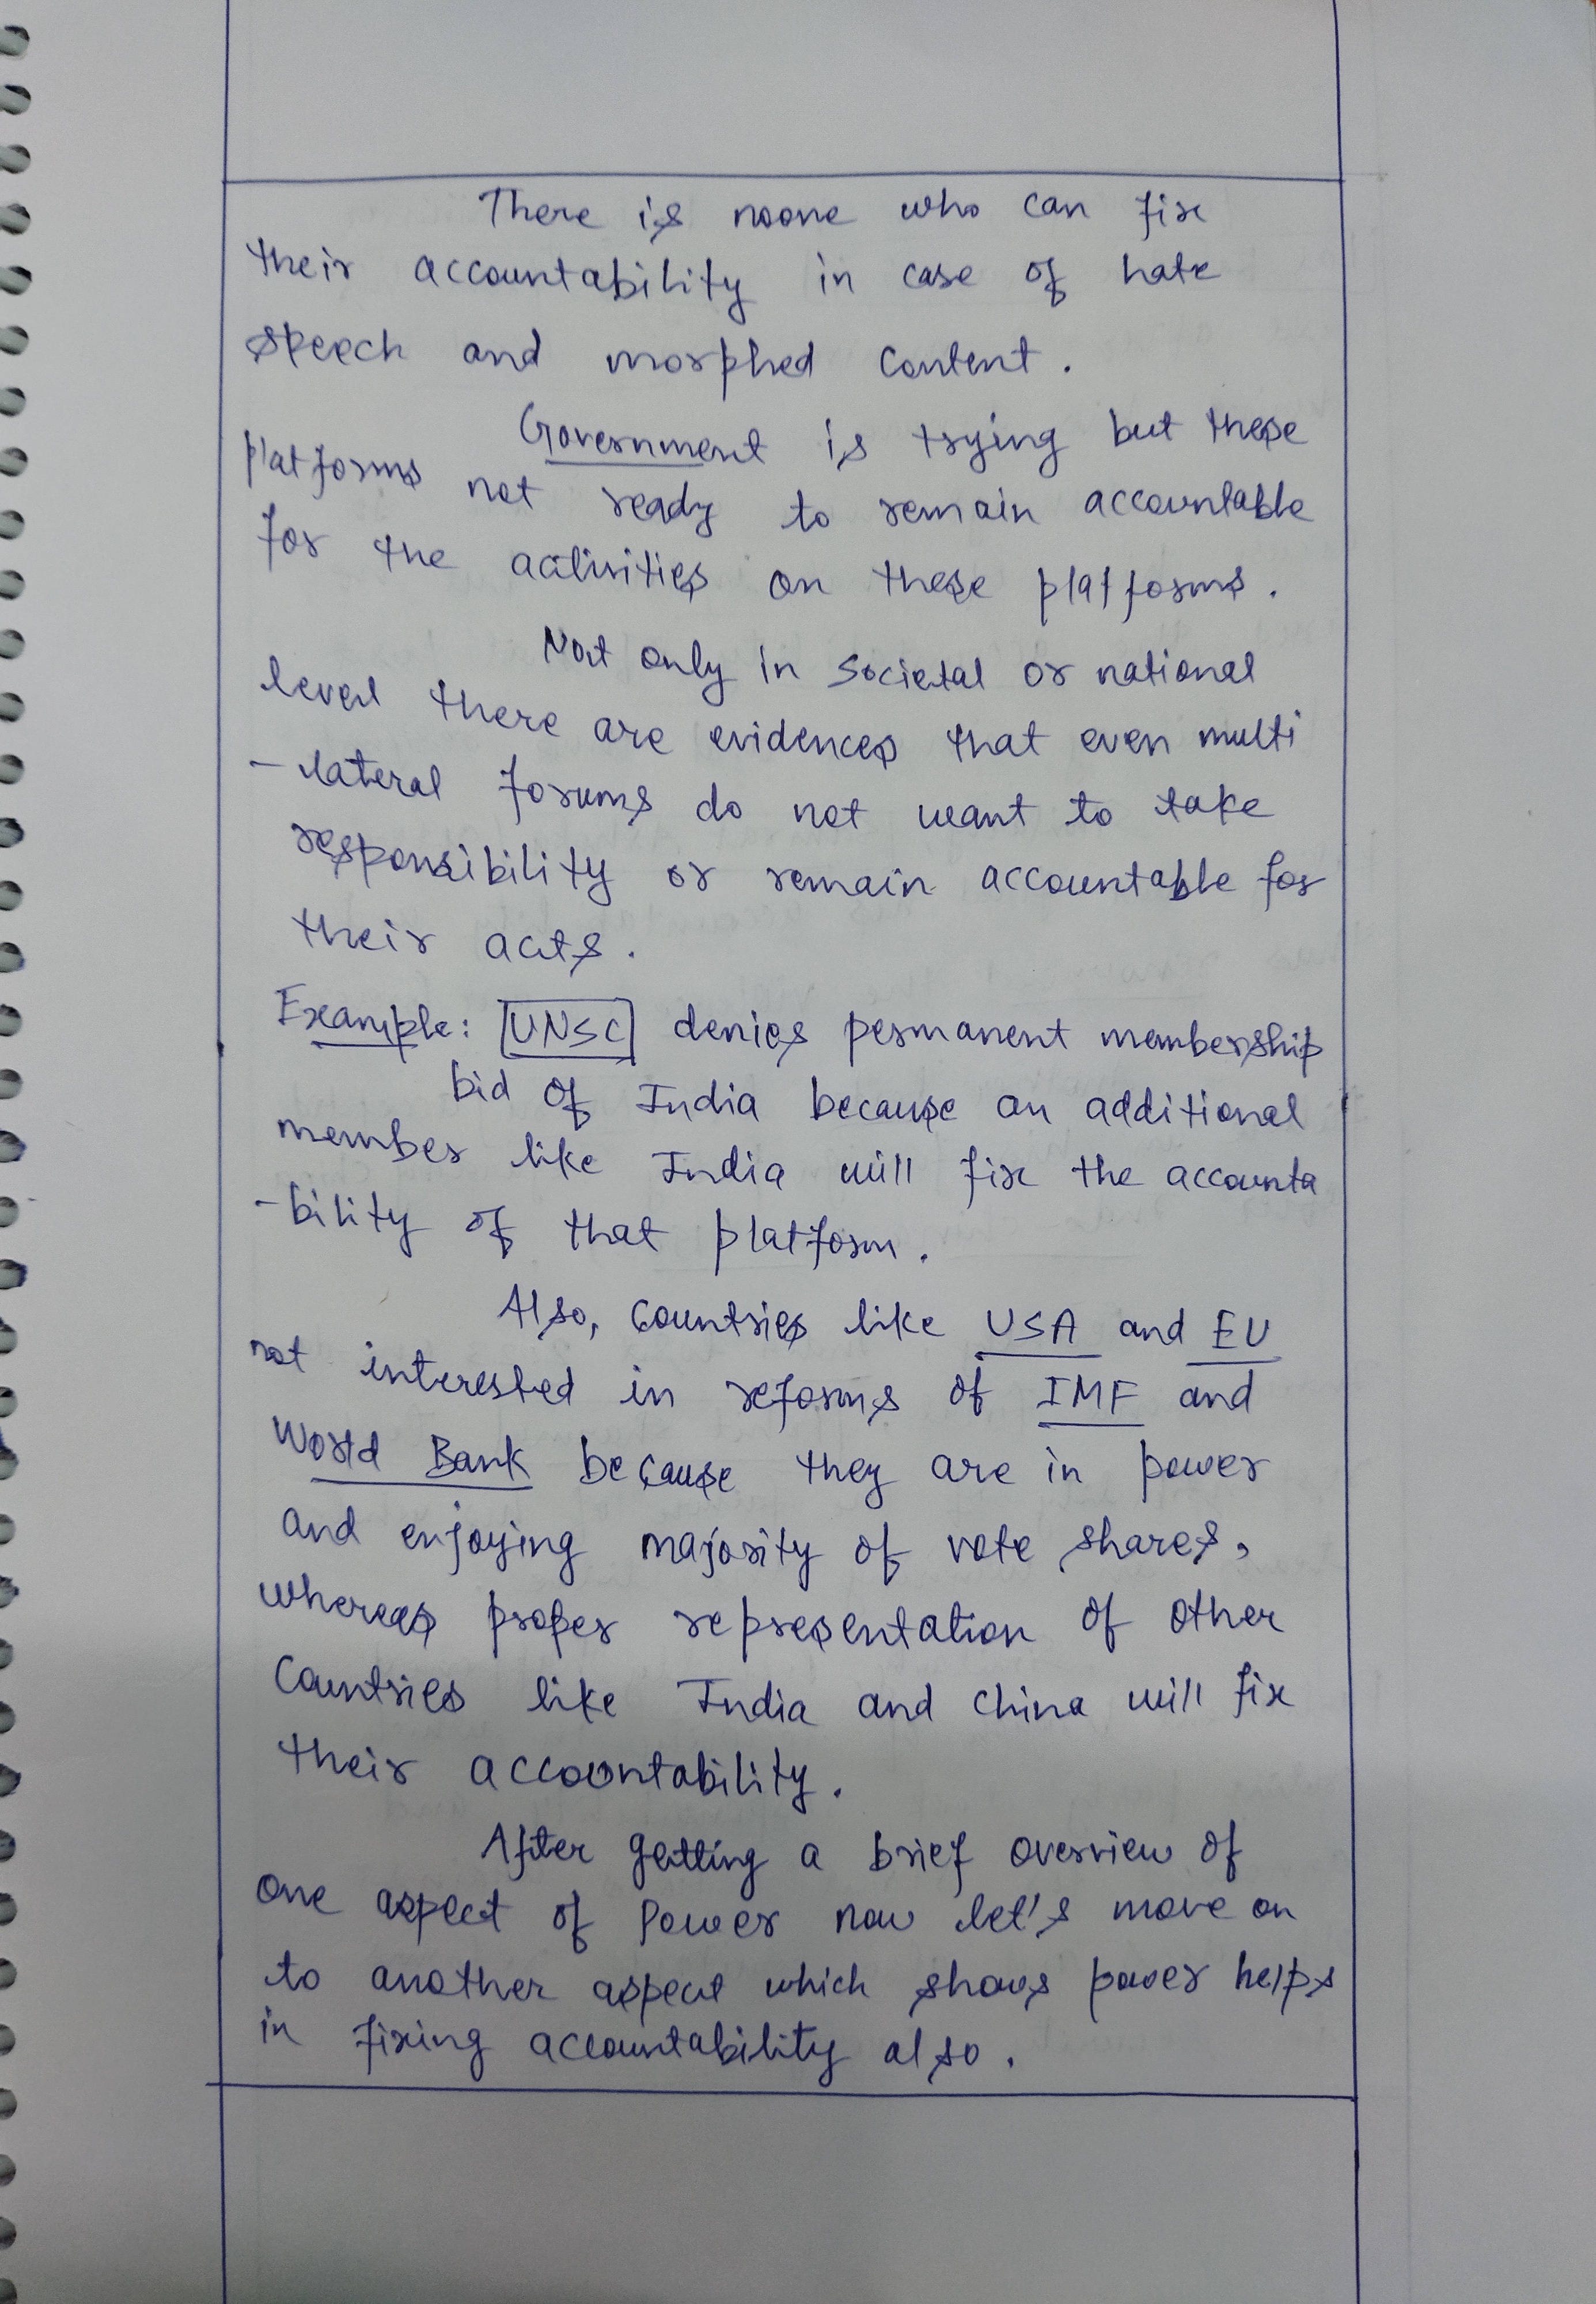 There is noone who can fix
their accountability in case of hate
speech and morphed content.
Government is trying but these
platforms not ready to remain accountable
for the activities on these platforms.
Not only in societal or national
level there are evidences that even multi
-lateral forums do not want to take
responsibility or remain accountable for
their acts.
Example: UNSC denies permanent membership
bid of India because an additional
member like India will fix the accounta
-bility of that platform.
Also, countries like USA and EU
not interested in reforms of IMF and
World Bank because they are in power
and enjoying majority of vote shares,
whereas proper representation of other
countries like India and China will fix
their accountability.
After getting a brief overview of
one aspect of power now let's move on
to another aspect which shows power helps
in fixing accountability also.